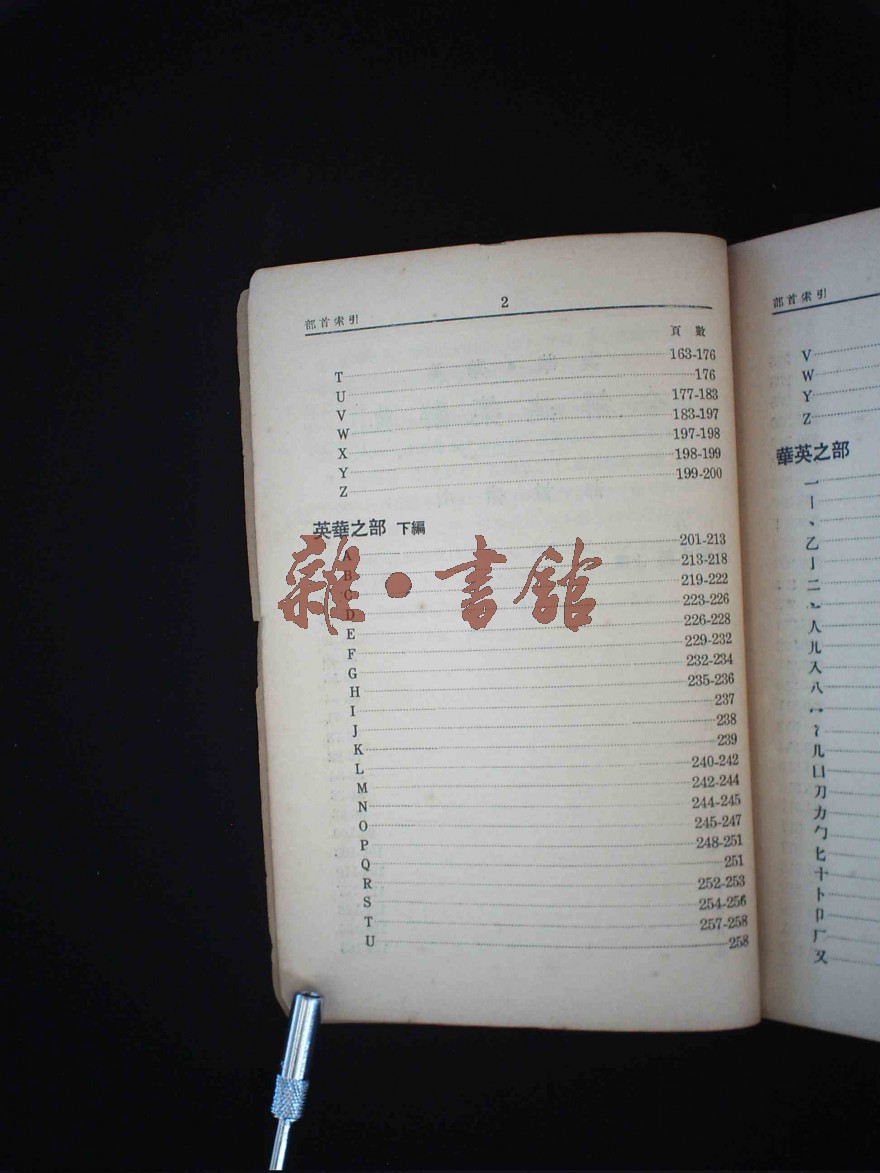 部首索引
2
頁 數
T 163-176
U 176
V 177-183
W 183-197
X 197-198
Y 198-199
Z 199-200
英華之部 下編
A 201-213
B 213-218
C 219-222
D 223-226
E 226-228
F 229-232
G 232-234
H 235-236
I 237
J 238
K 239
L 240-242
M 242-244
N 244-245
O 245-247
P 248-251
Q 251
R 252-253
S 254-256
T 257-258
U 258
雜·書館
部首索引
V
W
Y
Z
華英之部
一
丨
丶
乙
亅
二
亠
人
儿
入
八
冖
冫
几
凵
刀
力
勹
匕
十
卜
卩
厂
又